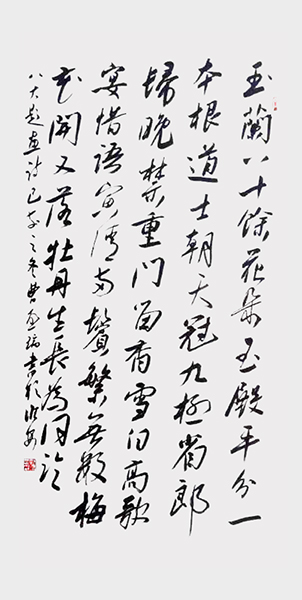 玉蘭八十餘花朵玉殿平分一
本根道士朝天冠九極省郎
歸晚禁重門留香雪白高歌
宴惜語寅清兩鬢繁無數梅
花開又落牡丹生長為同論
八大題畫詩己亥之冬曹瑞書於淮安